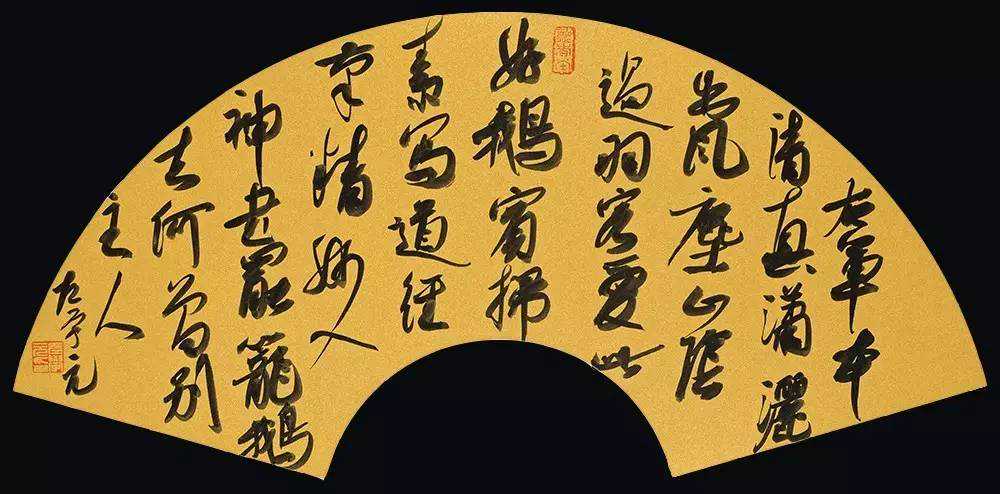 右軍本
清真瀟灑
出風塵山陰
過羽客愛此
好鵝賓掃
素寫道經
筆精妙入
神書罷籠鵝
去何曾別
主人